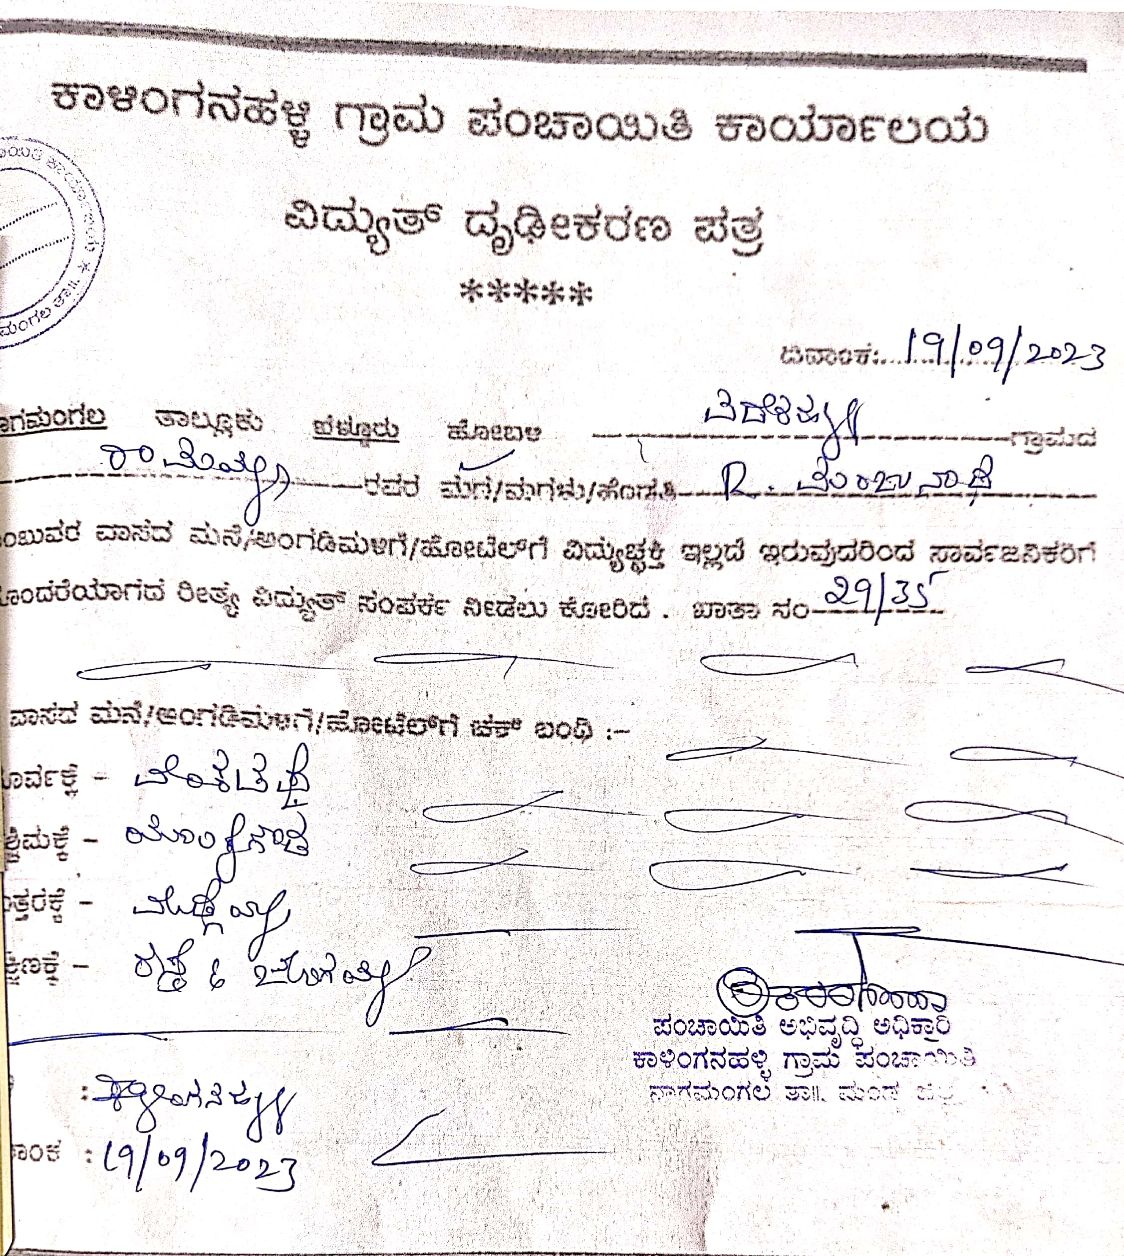 ಕಾಳಿಂಗನಹಳ್ಳಿ ಗ್ರಾಮ ಪಂಚಾಯಿತಿ ಕಾರ್ಯಾಲಯ
ವಿದ್ಯುತ್ ದೃಢೀಕರಣ ಪತ್ರ
*****
ದಿನಾಂಕ:...19/09/2023
ಾಗಮಂಗಲ ತಾಲ್ಲೂಕು ಬೆಳ್ಳೂರು ಹೋಬಳಿ ಗ್ರಾಮದ
ರವರ ಮಗ/ಮಗಳು/ಹೆಂಡತಿ R. ಮಂಜುನಾಥ
ಂಬುವರ ವಾಸದ ಮನೆ/ಅಂಗಡಿಮಳಿಗೆ/ಹೋಟೆಲ್‌ಗೆ ವಿದ್ಯುಚ್ಛಕ್ತಿ ಇಲ್ಲದೆ ಇರುವುದರಿಂದ ಸಾರ್ವಜನಿಕರಿಗೆ
ೊಂದರೆಯಾಗದ ರೀತ್ಯ ವಿದ್ಯುತ್ ಸಂಪರ್ಕ ನೀಡಲು ಕೋರಿದೆ . ಖಾತಾ ಸಂ 29/35
ವಾಸದ ಮನೆ/ಅಂಗಡಿಮಳಿಗೆ/ಹೋಟೆಲ್‌ಗೆ ಚಕ್ ಬಂಧಿ :-
ೂರ್ವಕ್ಕೆ - ವೆಂಕಟಪ್ಪ
ಶ್ಚಿಮಕ್ಕೆ -
ತ್ತರಕ್ಕೆ -
ಕ್ಷಿಣಕ್ಕೆ - ರಸ್ತೆ &
ಪಂಚಾಯಿತಿ ಅಭಿವೃದ್ಧಿ ಅಧಿಕಾರಿ
ಕಾಳಿಂಗನಹಳ್ಳಿ ಗ್ರಾಮ ಪಂಚಾಯಿತಿ
ನಾಗಮಂಗಲ ತಾ||.
: ಕಾಳಿಂಗನಹಳ್ಳಿ
ಾಂಕ : 19/09/2023